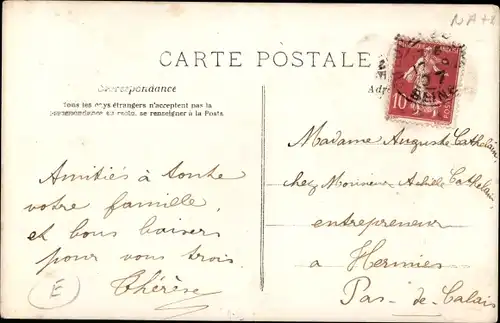 NA+2
CARTE POSTALE
Correspondance
Tous les pays étrangers n'acceptent pas la
correspondance au recto, se renseigner à la Poste
Adr
10
POSTES
SEINE
Amitiés à toute
votre famille,
et bons baisers
pour vous trois.
Thérèse
E
Madame Auguste Cathelain
chez Monsieur Achille Cathelain
entrepreneur
a Hermies
Pas-de-Calais